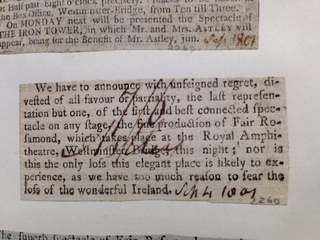 at Half past
the Box Office, Westminster-Bridge, from Ten till Three.
On MONDAY next will be presented the Spectacle of
THE IRON TOWER, in which Mr. and Mrs. ASTLEY will
appear, being for the Benefit of Mr. Astley, jun.
We have to announce with unfeigned regret, di-
vested of all favour or partiality, the last represen-
tation but one, of the first and best connected spec-
tacle on any stage, the fine production of Fair Ro-
samond, which takes place at the Royal Amphi-
theatre, Westminster Bridge, this night; nor is
this the only loss this elegant place is likely to ex-
perience, as we have too much reason to fear the
loss of the wonderful Ireland. Sep 4 1801
2260